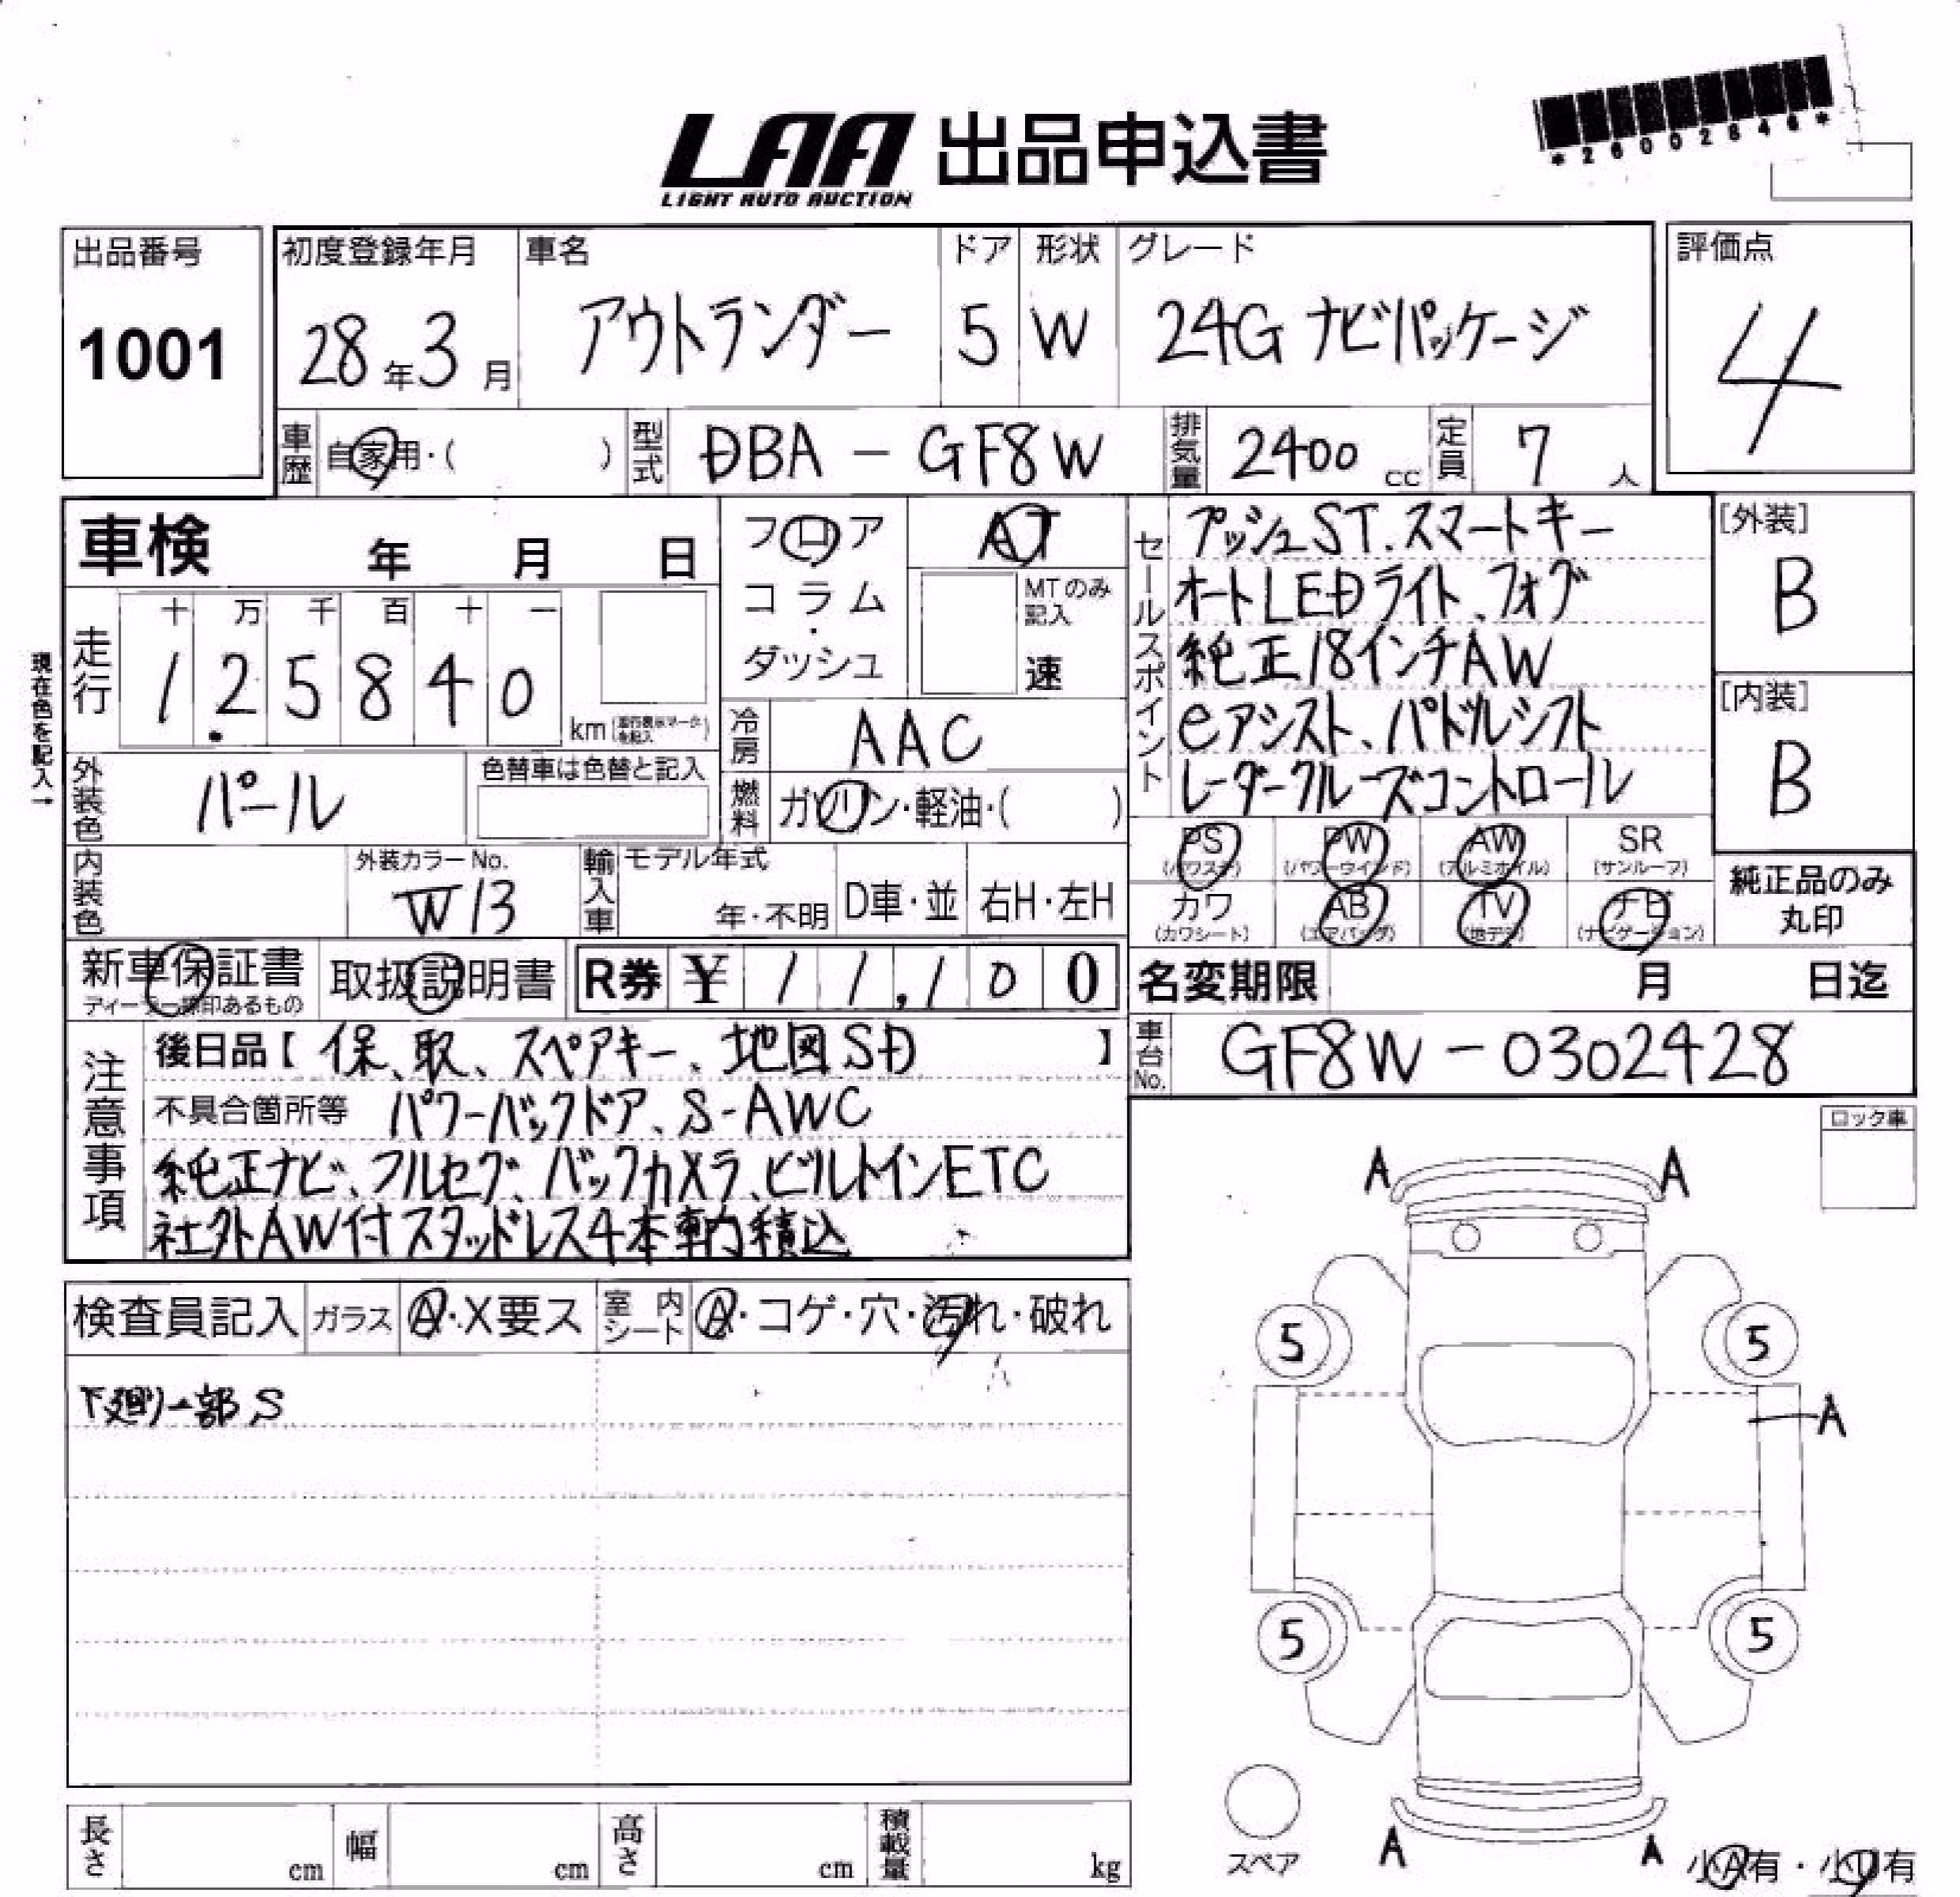 LAA 出品申込書
LIGHT AUTO AUCTION
*26002846*
出品番号
1001
初度登録年月
28年3月
車名
アウトランダー
ドア
5
形状
W
グレード
24G ナビパッケージ
評価点
4
車歴 自家用・( )
型式 DBA - GF8W
排気量 2400 cc
定員 7 人
車検 年 月 日
フロア
コラム・ダッシュ
AT
MTのみ記入
速
セールスポイント
プッシュST.スマートキー
オートLEDライト、フォグ
純正18インチAW
eアシスト、パドルシフト
レーダークルーズコントロール
[外装]
B
[内装]
B
現在色を記入→
走行
十 万 千 百 十 一
1 2. 5 8 4 0
km
冷房 AAC
外装色 パール
色替車は色替と記入
燃料 ガソリン・軽油・( )
内装色
外装カラーNo.
W13
輸入車
モデル年式
年・不明
D車・並
右H・左H
PS (パワステ)
PW (パワーウインド)
AW (アルミホイル)
SR (サンルーフ)
カワ (カワシート)
AB (エアバッグ)
TV (地デジ)
ナビ (ナビゲーション)
純正品のみ
丸印
新車保証書
取扱説明書
R券 ¥ 1 1,1 0 0
名変期限 月 日迄
車台No. GF8W - 0302428
注意事項
後日品【 保、取、スペアキー、地図SD 】
不具合箇所等 パワーバックドア、S-AWC
純正ナビ、フルセグ、バックカメラ、ビルトインETC
社外AW付スタッドレス4本車内積込
ロック車
検査員記入
ガラス A・X要ス
室内シート A・コゲ・穴・汚れ・破れ
下廻り一部S
A A
5 5
A
5 5
スペア
A A
小A有・小U有
長さ cm
幅 cm
高さ cm
積載量 kg